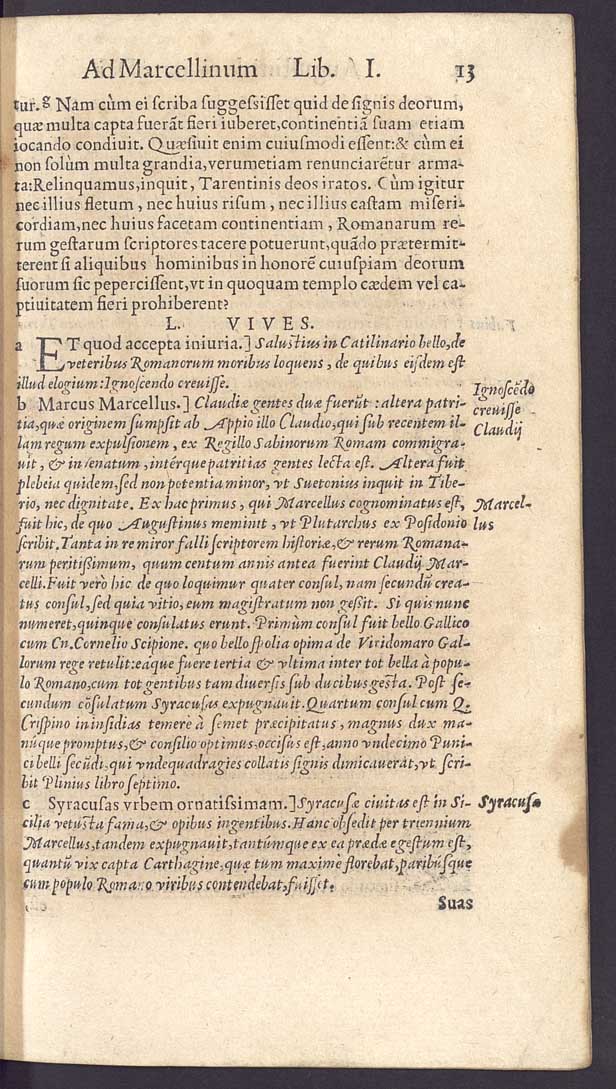 Ad Marcellinum Lib. I. 13
tur.g Nam cùm ei scriba suggessisset quid de signis deorum,
quæ multa capta fuerāt fieri iuberet,continentiā suam etiam
iocando condiuit. Quæsiuit enim cuiusmodi essent:& cùm ei
non solùm multa grandia,verumetiam renunciarētur arma-
ta:Relinquamus,inquit, Tarentinis deos iratos. Cùm igitur
nec illius fletum, nec huius risum, nec illius castam miseri-
cordiam,nec huius facetam continentiam, Romanarum re-
rum gestarum scriptores tacere potuerunt,quādo prætermit-
terent si aliquibus hominibus in honorē cuiuspiam deorum
suorum sic pepercissent,vt in quoquam templo cædem vel ca-
ptiuitatem fieri prohiberent?
L. VIVES.
a ET quod accepta iniuria.] Salustius in Catilinario bello,de
veteribus Romanorum moribus loquens, de quibus eisdem est
illud elogium:Ignoscendo creuisse.
Ignoscēdo
creuisse
b Marcus Marcellus.] Claudiæ gentes duæ fuerūt :altera patri-
Claudij
tia,quæ originem sumpsit ab Appio illo Claudio,qui sub recentem il-
lam regum expulsionem, ex Regillo Sabinorum Romam commigra-
uit, & in senatum, intérque patritias gentes lecta est. Altera fuit
plebeia quidem,sed non potentia minor, vt Suetonius inquit in Tibe-
rio, nec dignitate. Ex hac primus, qui Marcellus cognominatus est,
Marcel-
lus
fuit hic, de quo Augustinus meminit, vt Plutarchus ex Posidonio
scribit. Tanta in re miror falli scriptorem historiæ,& rerum Romana-
rum peritissimum, quum centum annis antea fuerint Claudij Mar-
celli.Fuit verò hic de quo loquimur quater consul, nam secundū crea-
tus consul,sed quia vitio,eum magistratum non gessit. Si quis nunc
numeret,quinque consulatus erunt. Primùm consul fuit bello Gallico
cum Cn.Cornelio Scipione. quo bello spolia opima de Viridomaro Gal-
lorum rege retulit:eáque fuere tertia & vltima inter tot bella à popu-
lo Romano,cum tot gentibus tam diuersis sub ducibus gesta. Post se-
cundum cōsulatum Syracusas expugnauit. Quartum consul cum Q.
Crispino in insidias temerè à semet præcipitatus, magnus dux ma-
nūque promptus,& consilio optimus,occisus est,anno vndecimo Puni-
ci belli secūdi,qui vndequadragies collatis signis dimicauerāt,vt scri-
bit Plinius libro septimo.
c Syracusas vrbem ornatissimam.]Syracusæ ciuitas est in Si-
Syracusæ
cilia vetusta fama,& opibus ingentibus.Hanc obsedit per triennium
Marcellus,tandem expugnauit,tantúmque ex ea prædæ egestum est,
quantū vix capta Carthagine,quæ tum maximè florebat,paribúsque
cum populo Romano viribus contendebat,fuisset.
Suas